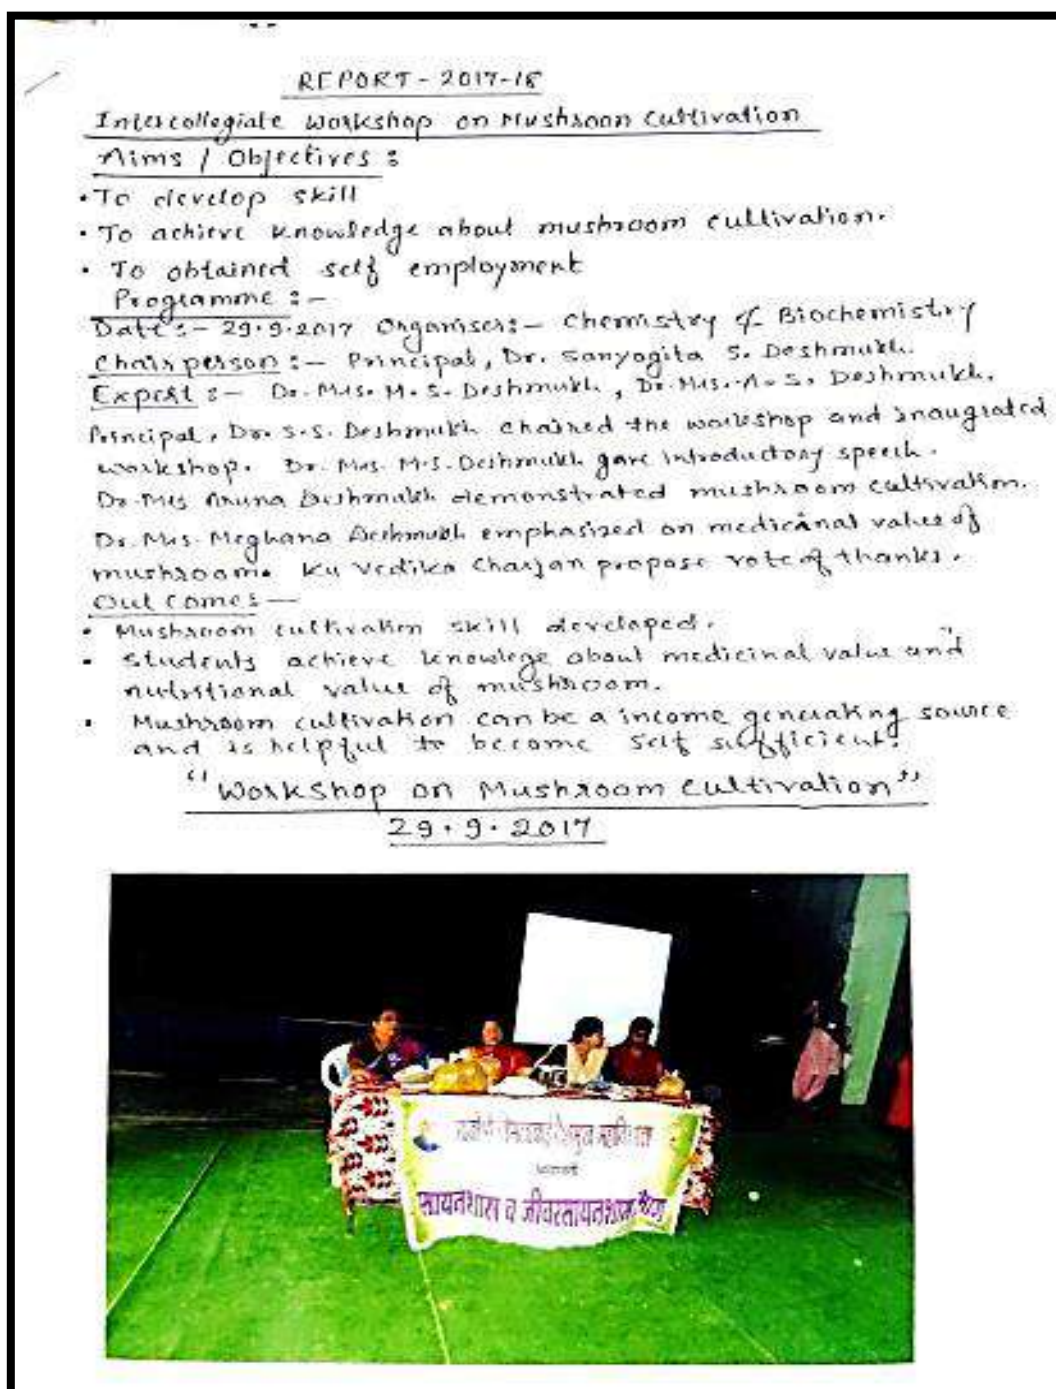 REPORT - 2017-18
Intercollegiate Workshop on Mushroom Cultivation
Aims / Objectives :
• To develop skill
• To achieve knowledge about mushroom cultivation.
• To obtained self employment
Programme :-
Date :- 29.9.2017 Organisers :- Chemistry & Biochemistry
Chairperson :- Principal, Dr. Sanyogita S. Deshmukh.
Expert :- Dr. Mrs. M. S. Deshmukh, Dr. Mrs. A. S. Deshmukh.
Principal, Dr. S. S. Deshmukh chaired the workshop and inaugrated
workshop. Dr. Mrs. M. S. Deshmukh gave introductory speech.
Dr. Mrs Aruna Deshmukh demonstrated mushroom cultivation.
Dr. Mrs. Meghana Deshmukh emphasized on medicinal value of
mushroom. Ku Vedika Charjan propose vote of thanks.
Out comes —
• Mushroom cultivation skill developed.
• Students achieve knowlege about medicinal value and
nutritional value of mushroom.
• Mushroom cultivation can be a income generating source
and is helpful to become self sufficient.
"Workshop on Mushroom Cultivation"
29.9.2017
महाविद्यालय
रसायनशास्त्र व जीवरसायनशास्त्र